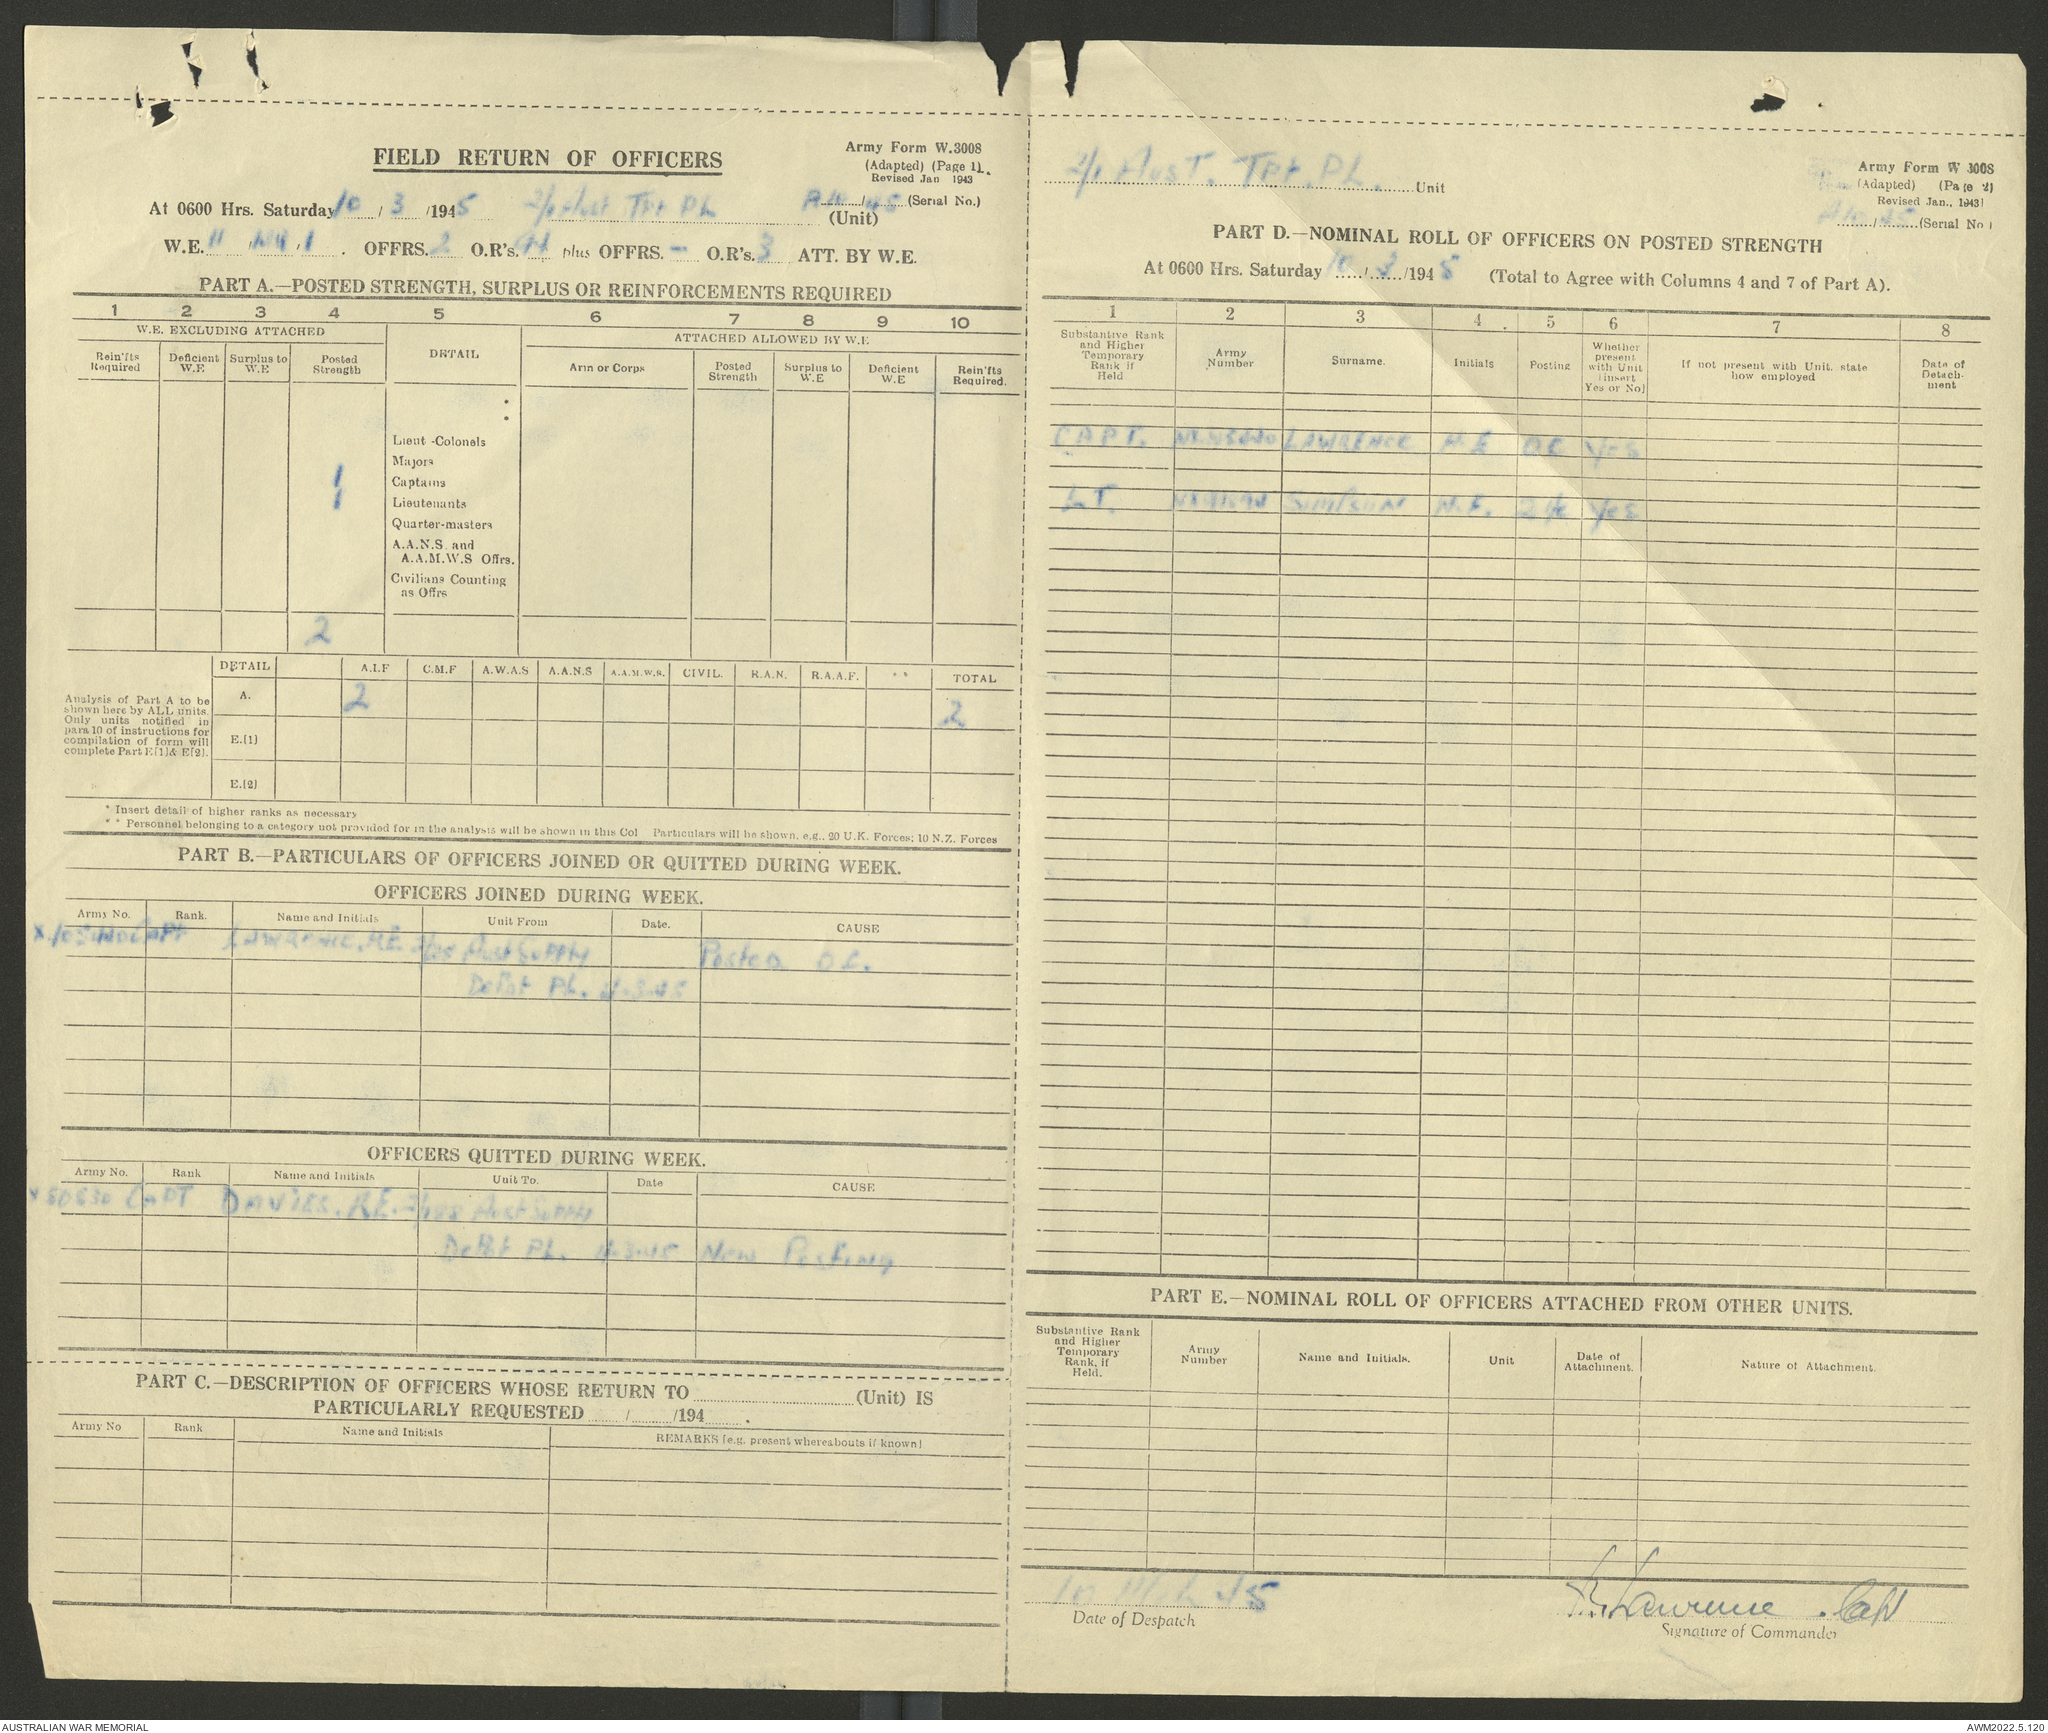 FIELD RETURN OF OFFICERS
Army Form W.3008
(Adapted) (Page 1).
Revised Jan 1943
At 0600 Hrs. Saturday 10 / 3 /1945 2/1 Aust Tpt PL (Unit) A10/45 (Serial No.)
W.E. 11 / / 1 . OFFRS. 2 O.R's. plus OFFRS. - O.R's. 3 ATT. BY W.E.
PART A.—POSTED STRENGTH, SURPLUS OR REINFORCEMENTS REQUIRED
1 2 3 4 5 6 7 8 9 10
W.E. EXCLUDING ATTACHED
DETAIL
ATTACHED ALLOWED BY W.E
Rein'fts Required
Deficient W.E
Surplus to W.E
Posted Strength
Arm or Corps
Posted Strength
Surplus to W.E
Deficient W.E
Rein'fts Required.
Lieut-Colonels
Majors
1 Captains
1 Lieutenants
Quarter-masters
A.A.N.S. and
A.A.M.W.S Offrs.
Civilians Counting
as Offrs
2
Analysis of Part A to be
shown here by ALL units.
Only units notified in
para 10 of instructions for
compilation of form will
complete Part E[1]& E[2].
DETAIL A.I.F C.M.F A.W.A.S A.A.N.S A.A.M.W.S. CIVIL. R.A.N. R.A.A.F. * * TOTAL
A. 2 2
E.(1)
E.(2)
* Insert detail of higher ranks as necessary
* * Personnel belonging to a category not provided for in the analysis will be shown in this Col Particulars will be shown, e.g., 20 U.K. Forces; 10 N.Z. Forces
PART B.—PARTICULARS OF OFFICERS JOINED OR QUITTED DURING WEEK.
OFFICERS JOINED DURING WEEK.
Army No. Rank. Name and Initials Unit From Date. CAUSE
CAPT LAWRENCE. H.E. Aust Supply Posted O.C.
Depot PL. 4-3-45
OFFICERS QUITTED DURING WEEK.
Army No. Rank Name and Initials Unit To. Date CAUSE
X50530 CAPT DAVIES. R.E. Aust Supply
Depot PL. 4-3-45 New Posting
PART C.—DESCRIPTION OF OFFICERS WHOSE RETURN TO (Unit) IS
PARTICULARLY REQUESTED / /194 .
Army No Rank Name and Initials REMARKS [e.g. present whereabouts if known]
2/1 Aust. Tpt. PL. Unit
Army Form W 3008
(Adapted) (Page 2)
Revised Jan., 1943
A10/45 (Serial No)
PART D.—NOMINAL ROLL OF OFFICERS ON POSTED STRENGTH
At 0600 Hrs. Saturday 10 / 3 /1945 (Total to Agree with Columns 4 and 7 of Part A).
1 2 3 4 5 6 7 8
Substantive Rank and Higher Temporary Rank if Held
Army Number
Surname.
Initials
Posting
Whether present with Unit [insert Yes or No]
If not present with Unit. state how employed
Date of Detachment
CAPT. LAWRENCE H.E OC Yes
LT. SIMPSON N.F. 2 i/c Yes
PART E.—NOMINAL ROLL OF OFFICERS ATTACHED FROM OTHER UNITS.
Substantive Rank and Higher Temporary Rank, if Held.
Army Number
Name and Initials.
Unit
Date of Attachment.
Nature of Attachment.
10 Mch 45
Date of Despatch
Lawrence Capt
Signature of Commander
AUSTRALIAN WAR MEMORIAL
AWM2022.5.120